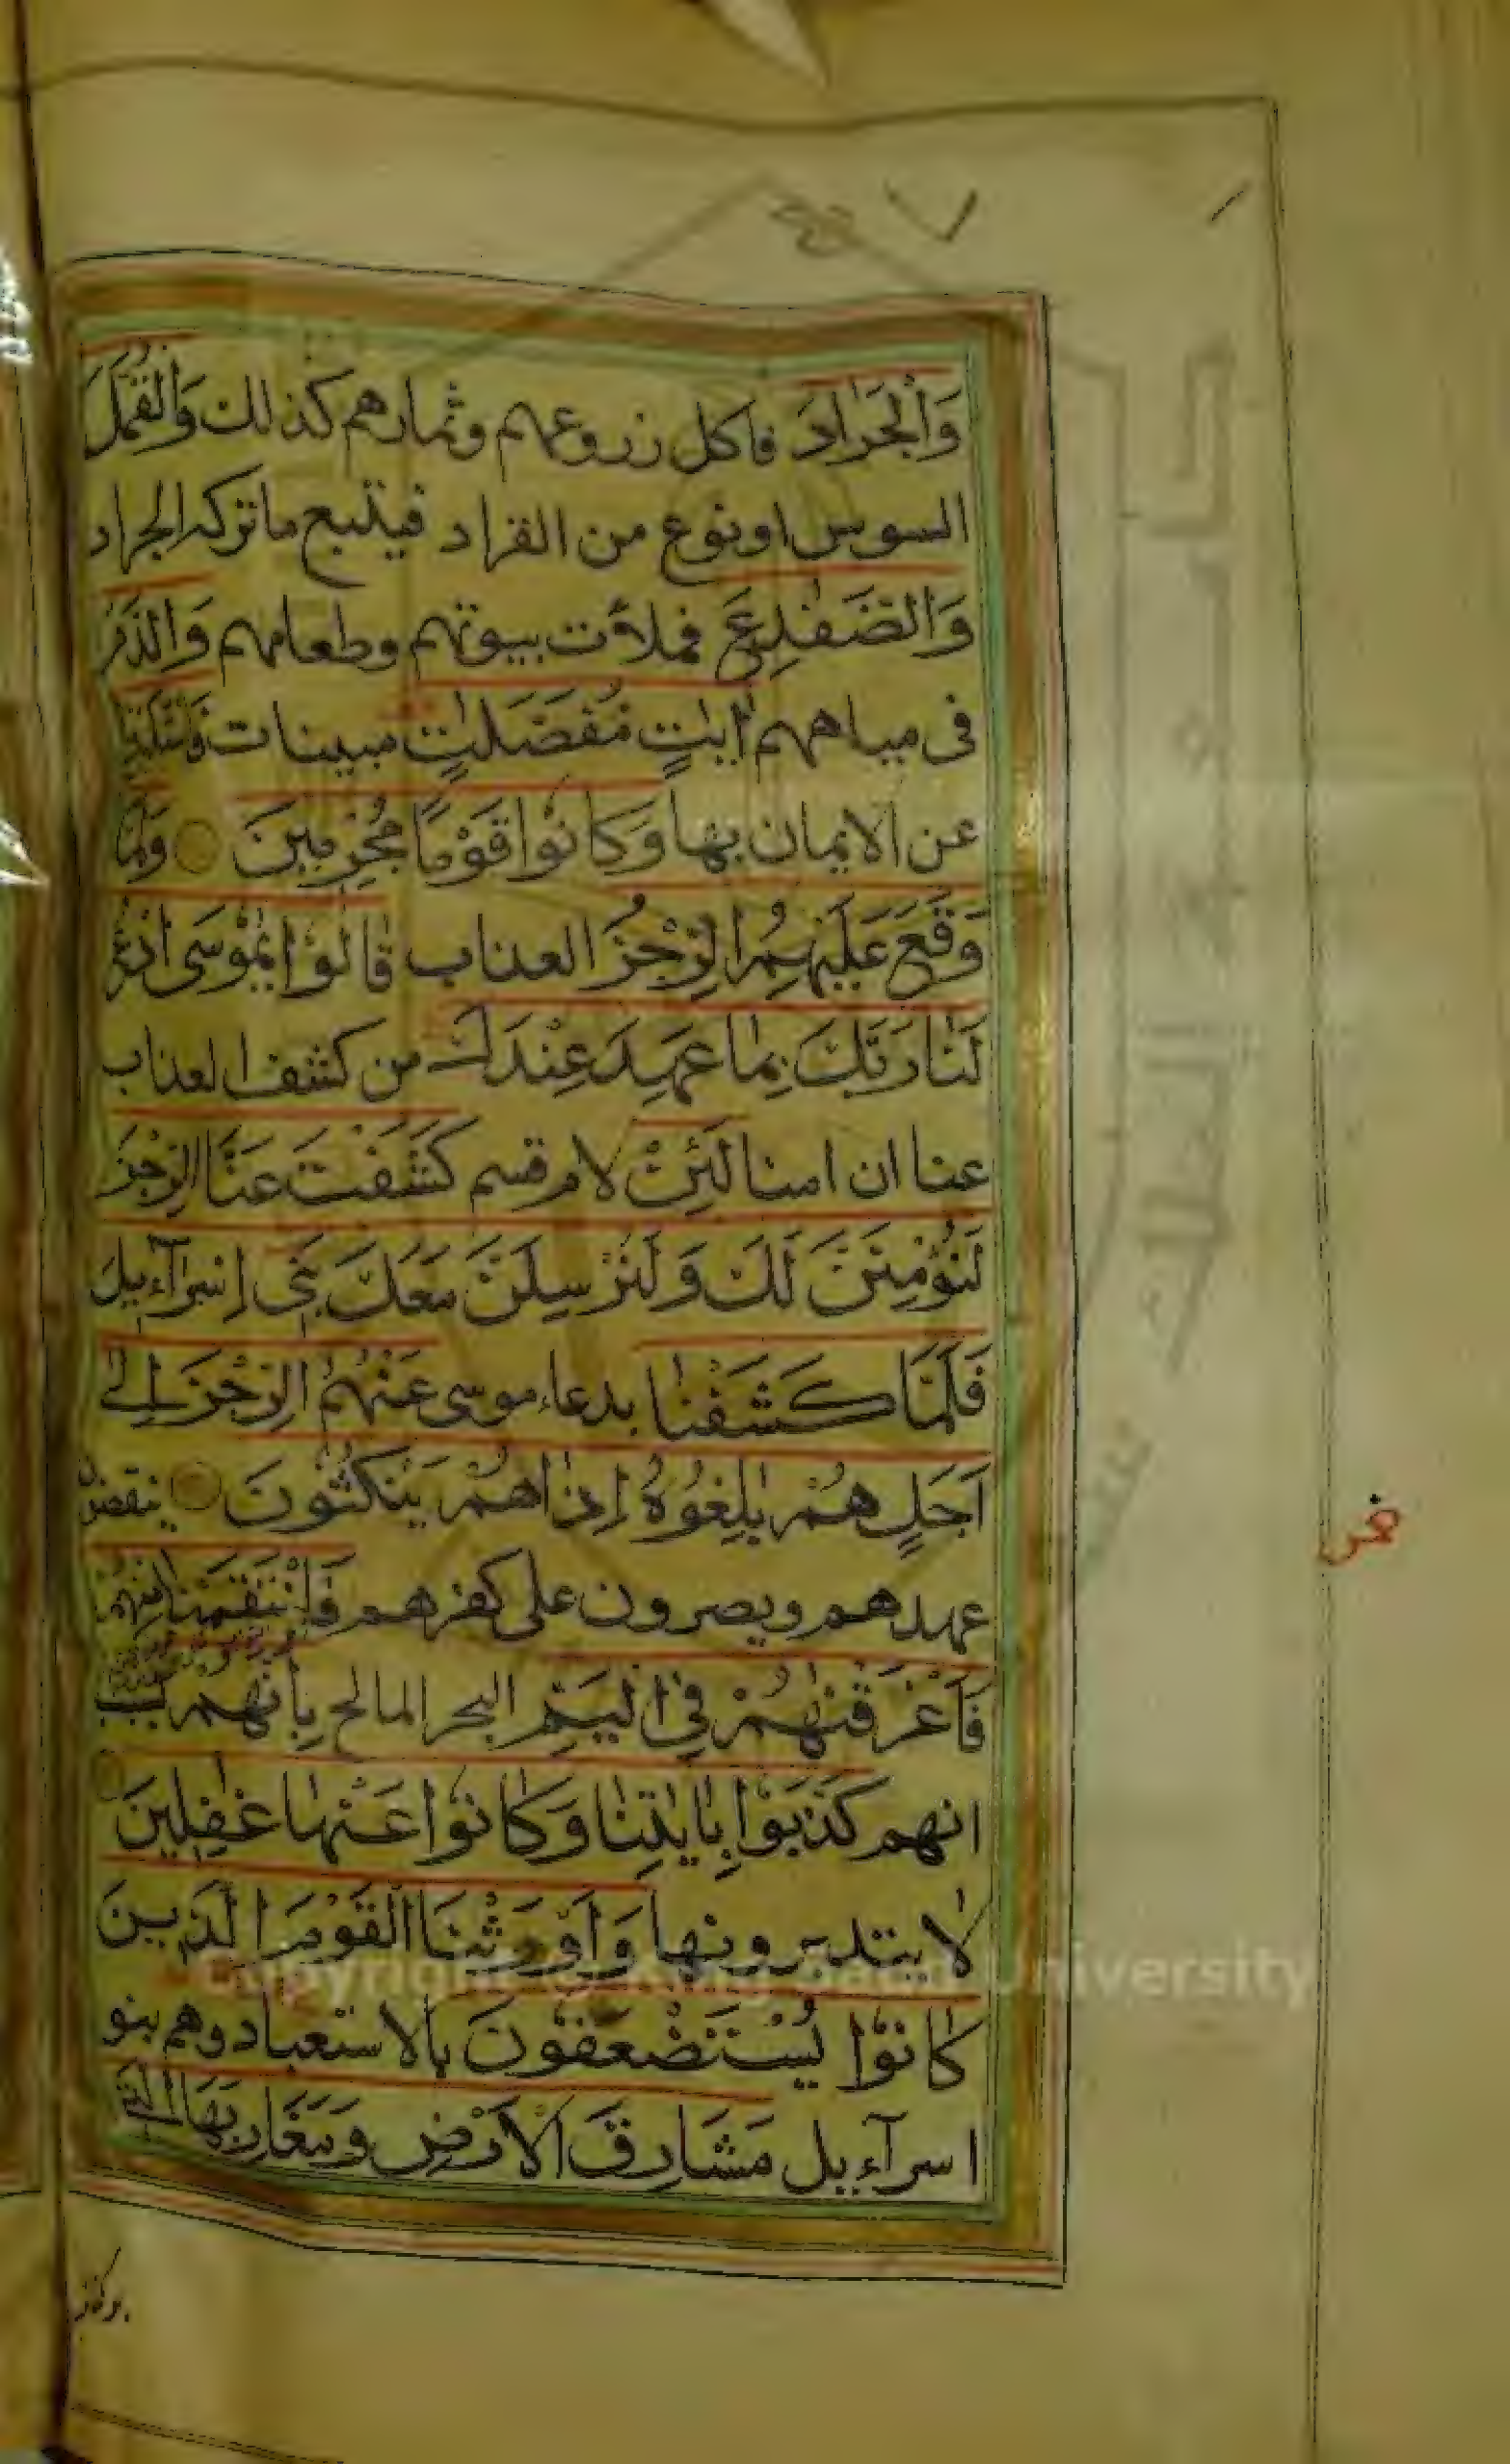 ٧
وَالْجَرَادَ فاكل زروعهم وثمارهم كذلك وَالْقُمَّلَ
السوس او نوع من القراد فيتبع ما تركه الجراد
وَالضَّفٰدِعَ فملأت بيوتهم وطعامهم وَالدَّمَ
فى مياههم اٰيٰتٍ مُفَصَّلٰتٍ مبينات فَاسْتَكْبَرُوا
عن الايمان بها وَكَانُوا قَوْمًا مُجْرِمِينَ وَلَمَّا
وَقَعَ عَلَيْهِمُ الرِّجْزُ العذاب قَالُوا يٰمُوسَى ادْعُ
لَنَا رَبَّكَ بِمَا عَهِدَ عِنْدَكَ من كشف العذاب
عنا ان امنا لَئِنْ لام قسم كَشَفْتَ عَنَّا الرِّجْزَ
لَنُؤْمِنَنَّ لَكَ وَلَنُرْسِلَنَّ مَعَكَ بَنِى إِسْرَآءِيلَ
فَلَمَّا كَشَفْنَا بدعاء موسى عَنْهُمُ الرِّجْزَ إِلٰى
أَجَلٍ هُمْ بٰلِغُوهُ إِذَا هُمْ يَنْكُثُونَ ينقضون
عهدهم ويصرون على كفرهم فَانْتَقَمْنَا مِنْهُمْ
فَأَغْرَقْنٰهُمْ فِى الْيَمِّ البحر المالح بِأَنَّهُمْ بسبب
انهم كَذَّبُوا بِاٰيٰتِنَا وَكَانُوا عَنْهَا غٰفِلِينَ
لا يتدبرونها وَأَوْرَثْنَا الْقَوْمَ الَّذِينَ
كَانُوا يُسْتَضْعَفُونَ بالاستعباد وهم بنو
اسرآءيل مَشَارِقَ الْأَرْضِ وَمَغَارِبَهَا الَّتِى
بركنا
Copyright © King Saud University